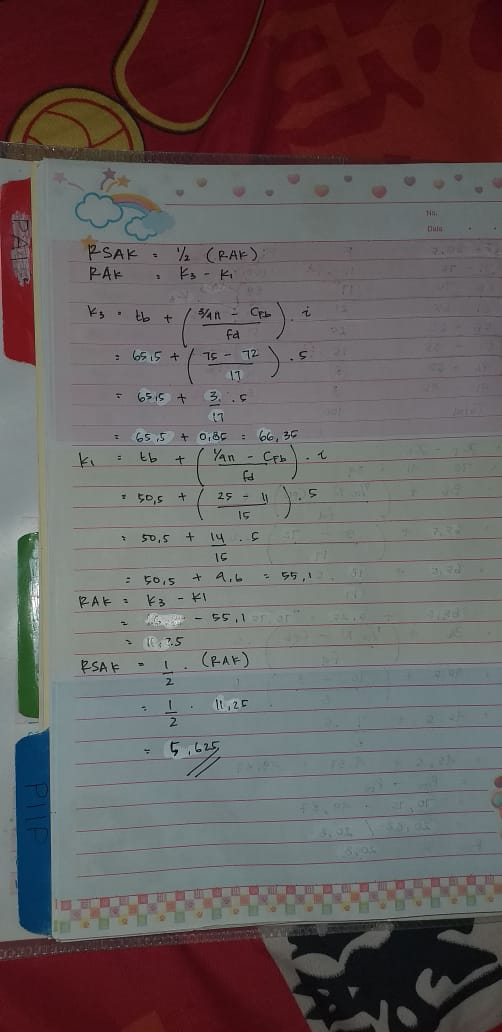 PAI
No.
Date
RSAK = 1/2 (RAK)
RAK = K3 - K1
K3 = tb + ( 3/4n - CFb / fd ) . i
= 65,5 + ( 75 - 72 / 17 ) . 5
= 65,5 + 3 / 17 . 5
= 65,5 + 0,85 = 66,35
K1 = tb + ( 1/4n - CFb / fd ) . i
= 50,5 + ( 25 - 11 / 15 ) . 5
= 50,5 + 14 / 15 . 5
= 50,5 + 4,6 = 55,1
RAK = K3 - K1
= - 55,1
= 11,25
RSAK = 1/2 . (RAK)
= 1/2 . 11,25
= 5,625
PIIP